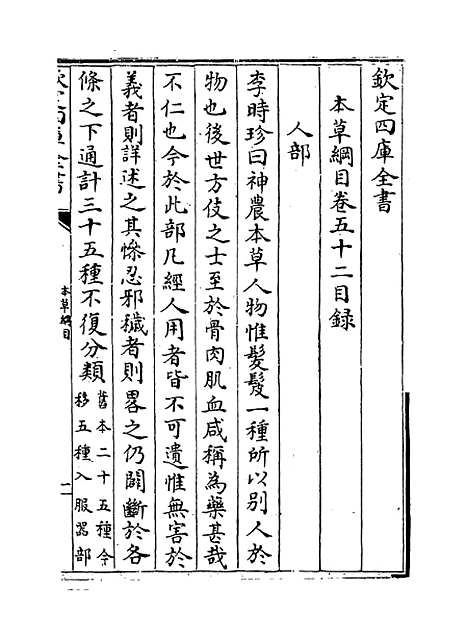 欽定四庫全書
本草綱目卷五十二目録
人部
李時珍曰神農本草人物惟髮髲一種所以别人於
物也後世方伎之士至於骨肉肌血咸稱為藥甚哉
不仁也今於此部凡經人用者皆不可遺惟無害於
義者則詳述之其慘忍邪穢者則畧之仍闢斷於各
條之下通計三十五種不復分類舊本二十五種今
移五種入服器部
欽定四庫全書
本草綱目
一